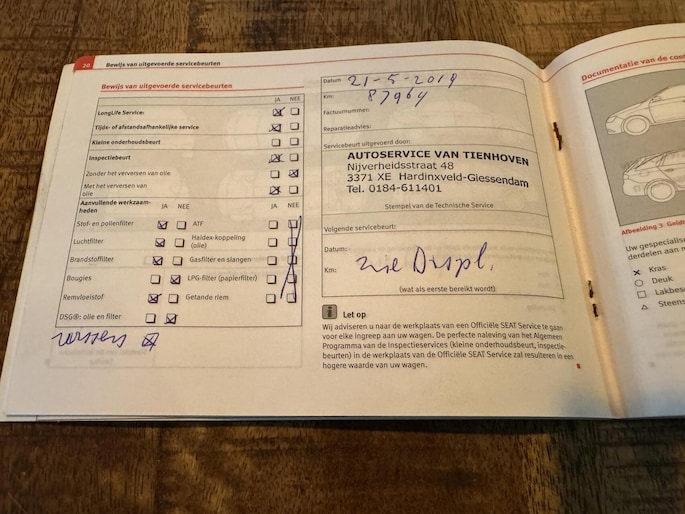 20
Bewijs van uitgevoerde servicebeurten
Bewijs van uitgevoerde servicebeurten
JA NEE
LongLife Service:
Tijds- of afstandsafhankelijke service
Kleine onderhoudsbeurt
Inspectiebeurt
Zonder het verversen van olie
Met het verversen van
olie
Aanvullende werkzaam-
heden
JA NEE
JA NEE
Stof- en pollenfilter
ATF
Luchtfilter
Haldex-koppeling
(olie)
Brandstoffilter
Gasfilter en slangen
Bougies
LPG-filter (papierfilter)
Remvloeistof
Getande riem
DSG®: olie en filter
Datum 21-5-2019
Km: 87964
Factuurnummer:
Reparatieadvies:
Servicebeurt uitgevoerd door:
AUTOSERVICE VAN TIENHOVEN
Nijverheidsstraat 48
3371 XE Hardinxveld-Giessendam
Tel. 0184-611401
Stempel van de Technische Service
Volgende servicebeurt:
Datum:
Km: zie Displ.
(wat als eerste bereikt wordt)
Let op
Wij adviseren u naar de werkplaats van een Officiële SEAT Service te gaan
voor elke ingreep aan uw wagen. De perfecte naleving van het Algemeen
Programma van de Inspectieservices (kleine onderhoudsbeurt, inspectie-
beurten) in de werkplaats van de Officiële SEAT Service zal resulteren in een
hogere waarde van uw wagen.
Documentatie van de
Afbeelding 3
Uw
derdelen aan
Kras
Deuk